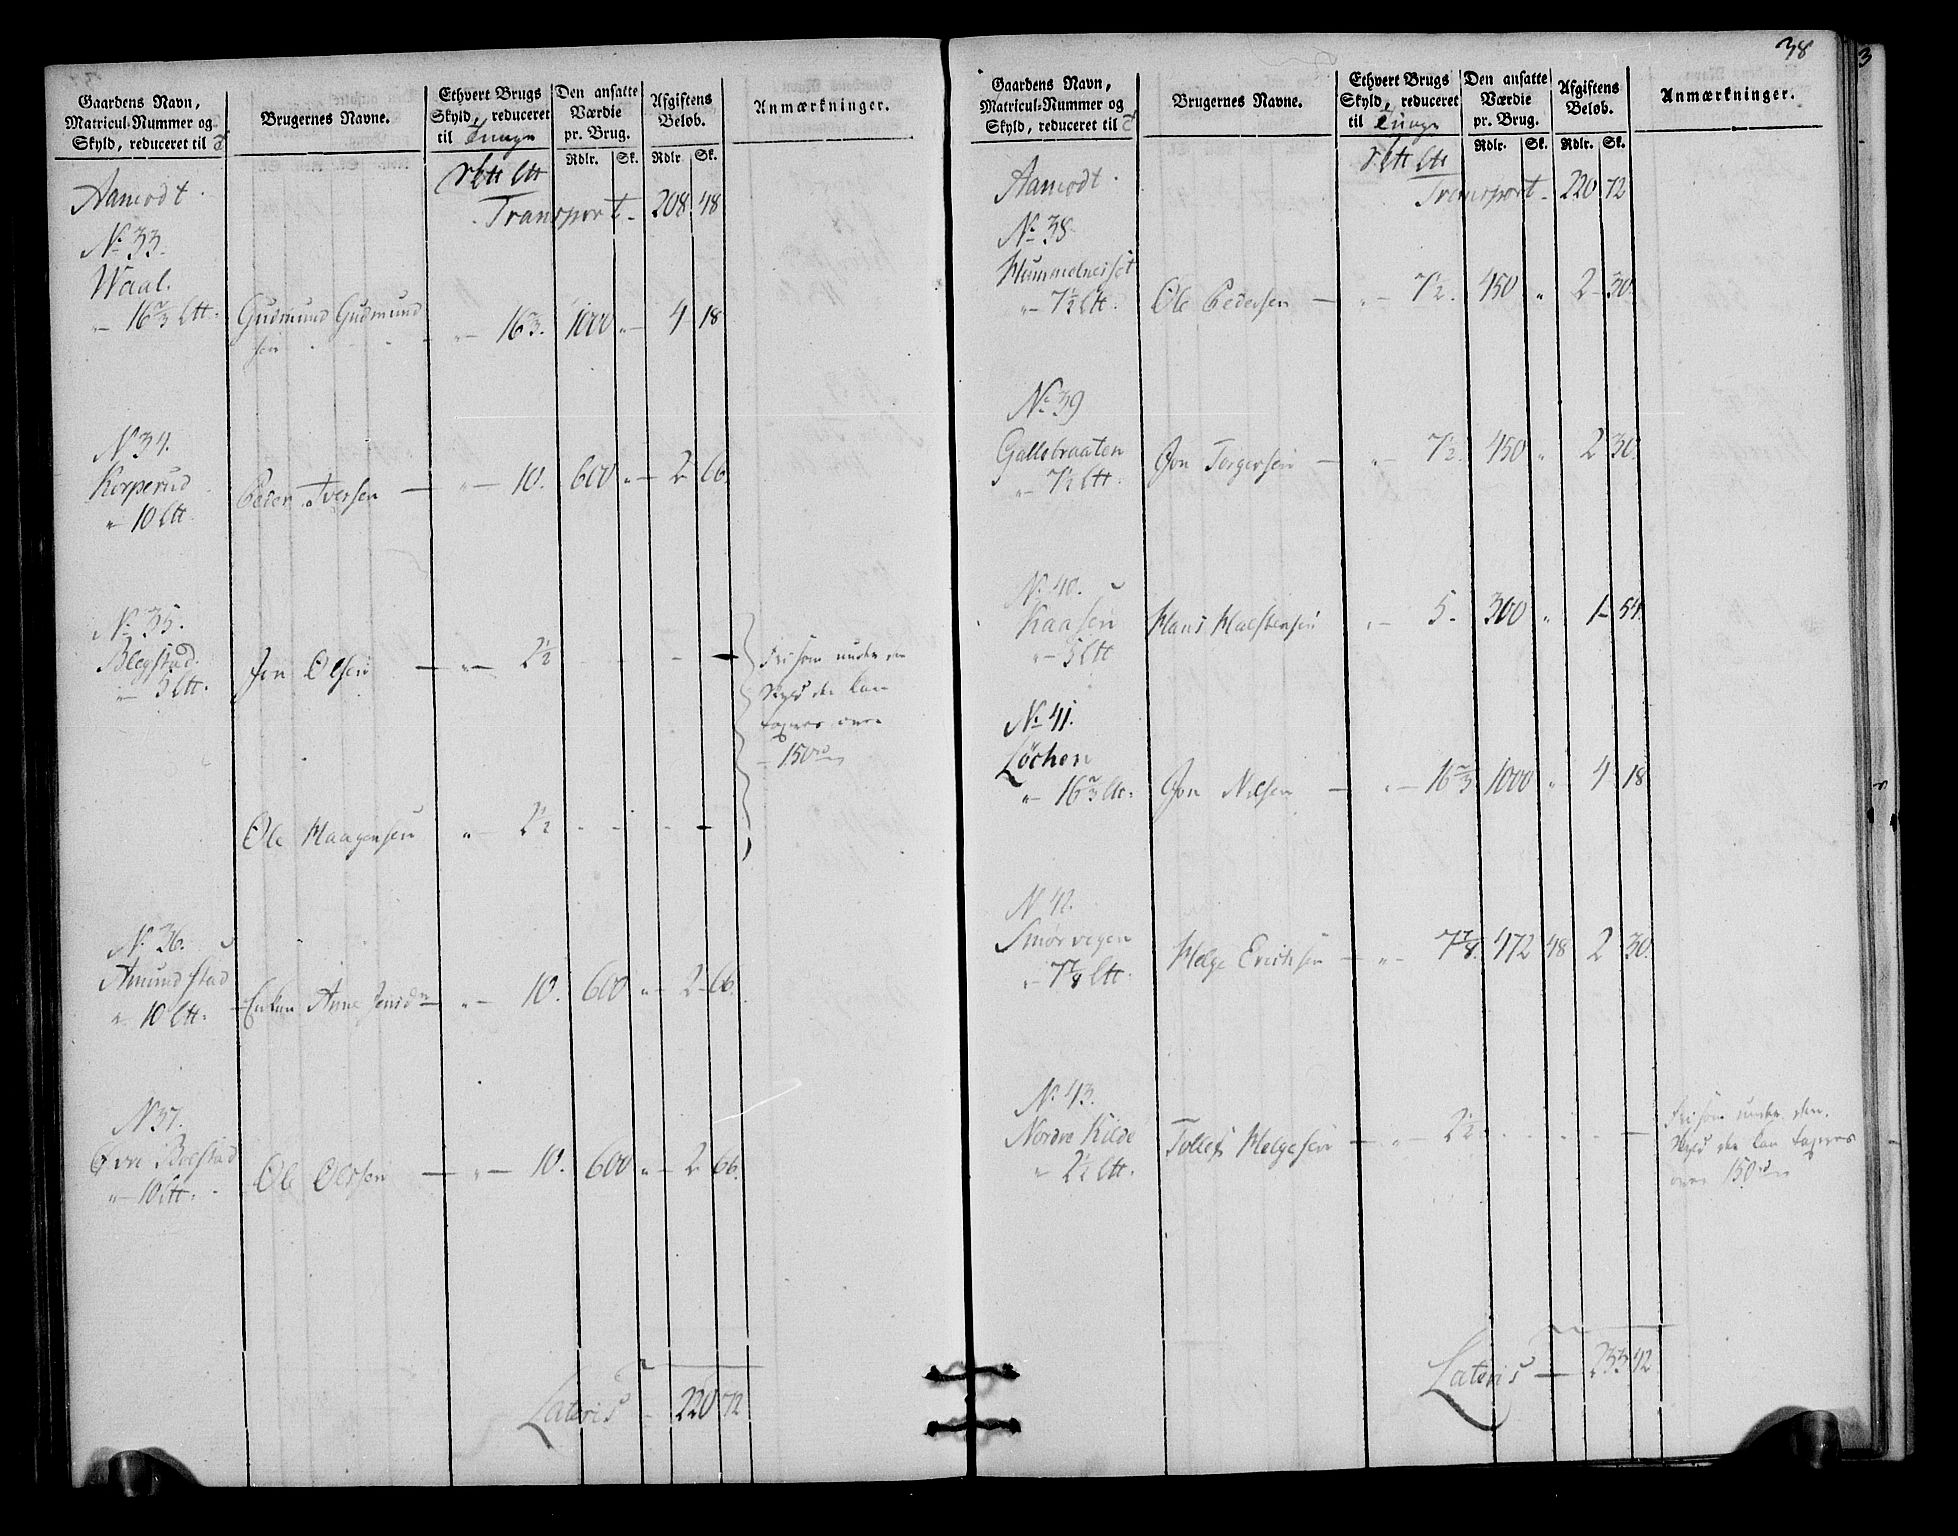 38
Gaardens Navn, Matricul-Nummer og Skyld, reduceret til
Brugernes Navne.
Ethvert Brugs Skyld, reduceret til Tunge
Den ansatte Værdie pr. Brug.
Afgiftens Beløb.
Anmærkninger.
Rdlr. Sk. Rdlr. Sk.
Aamodt
Transport - 208 48
No 33.
Waal.
" 16 2/3 Ltt. Gudmund Gudmund
sen " 16 2/3. 1000 " 4 18
N 34.
Korperud
" 10 Ltt. Peder Iversen — " 10. 600 " 2 66.
No 35.
Blegstad.
" 5 Ltt. Jon Olsen — " 2 1/2
Fri som under en
Skyld der kan
taxeres over
150
Ole Haagensen " 2 1/2
No 36.
Amundstad
" 10 Ltt. Enken Anne Jensd. " 10. 600 " 2 66.
N 37.
Øvre Bolstad
" 10 Ltt. Ole Olssen — " 10. 600 " 2 66.
Lateris - 220 72
Gaardens Navn, Matricul-Nummer og Skyld, reduceret til
Brugernes Navne.
Ethvert Brugs Skyld, reduceret til Tunge
Den ansatte Værdie pr. Brug.
Afgiftens Beløb.
Anmærkninger.
Rdlr. Sk. Rdlr. Sk.
Aamodt
Transport - 220 72
No 38
Hummelneiset
" 7 1/2 Ltt. Ole Pedersen — " 7 1/2. 450 " 2 30.
No 39
Gallebraaten
" 7 1/2 Ltt. Jon Torgersen — " 7 1/2. 450 " 2 30.
No 40.
Kaasen
" 5 Ltt Hans Halstensen " 5. 300 " 1 54.
No 41.
Løchen
" 16 2/3 Ltt. Jon Nilsen — " 16 2/3 1000 " 4 18
N 42.
Smørvegen
" 7 7/8 Ltt. Helge Erichsen — " 7 7/8. 472 48 2 30.
No 43.
Nordre Kilde
" 2 1/2 Ltt. Tollef Helgesen — " 2 1/2
Fri som under den
Skyld der kan taxeres
over 150
Lateris — 233 42